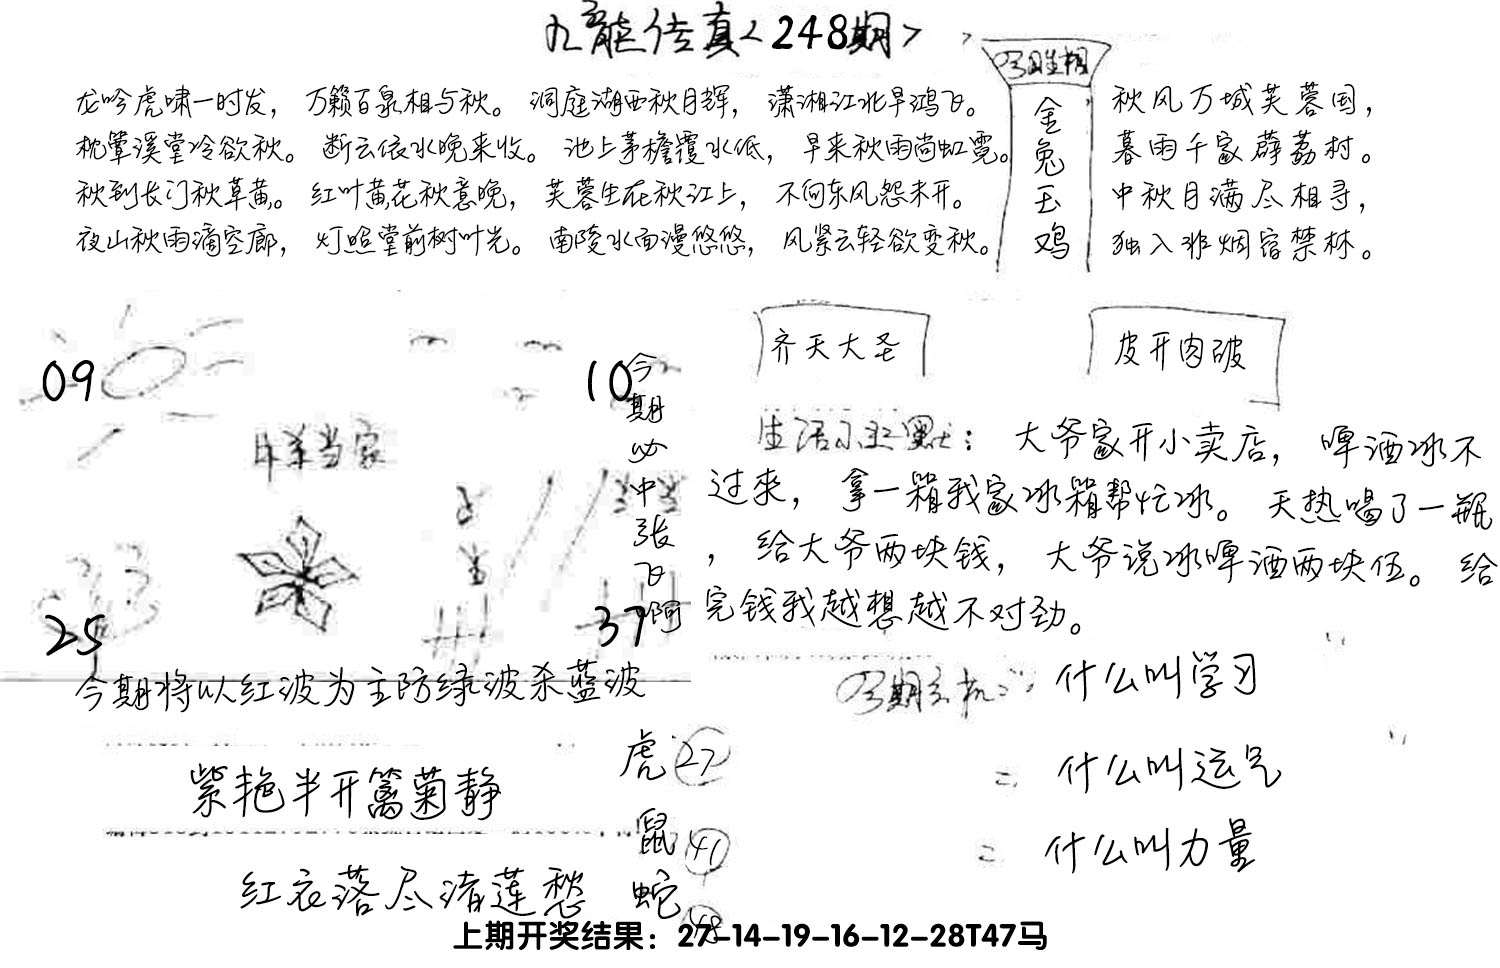 九龙传真<248期>
今日生相
金兔玉鸡
龙吟虎啸一时发，万籁百泉相与秋。洞庭湖西秋月辉，潇湘江北早鸿飞。
枕簟溪堂冷欲秋。断云依水晚来收。池上茅檐覆水低，早来秋雨尚虹霓。
秋到长门秋草黄。红叶黄花秋意晚，芙蓉生在秋江上，不向东风怨未开。
夜山秋雨滴空廊，灯照堂前树叶光。南陵水面漫悠悠，风紧云轻欲变秋。
秋风万城芙蓉国，
暮雨千家薜荔村。
中秋月满尽相寻，
独入非烟宿禁林。
09
10
羊当家
25
37
今期必中张飞啊
今期将以红波为主防绿波杀蓝波
齐天大圣
皮开肉破
生活小幽默：大爷家开小卖店，啤酒冰不
过来，拿一箱我家冰箱帮忙冰。天热喝了一瓶
，给大爷两块钱，大爷说冰啤酒两块伍。给
完钱我越想越不对劲。
今期玄机：什么叫学习
什么叫运气
什么叫力量
紫艳半开篱菊静
红衣落尽渚莲愁
虎 27
鼠 41
蛇 48
上期开奖结果：27-14-19-16-12-28T47马